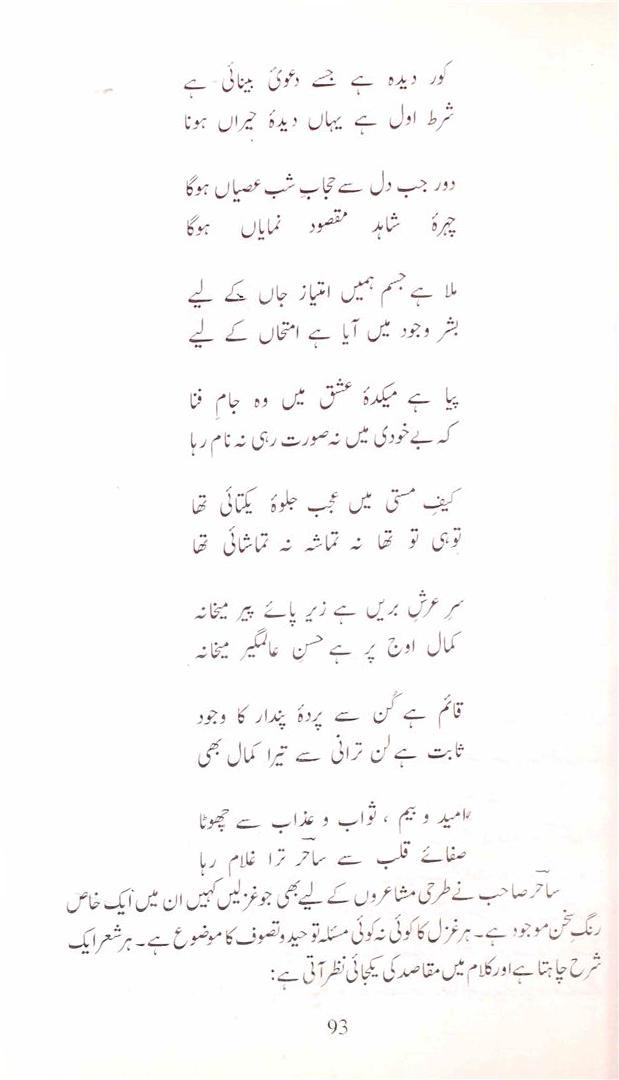 کور دیدہ ہے جسے دعویٔ بینائی ہے
شرط اول ہے یہاں دیدۂ حیراں ہونا
دور جب دل سے حجابِ شب عصیاں ہوگا
چہرۂ شاہد مقصود نمایاں ہوگا
ملا ہے جسم ہمیں امتیاز جاں کے لیے
بشر وجود میں آیا ہے امتحاں کے لیے
پیا ہے میکدۂ عشق میں وہ جامِ فنا
کہ بے خودی میں نہ صورت رہی نہ نام رہا
کیفِ مستی میں عجب جلوۂ یکتائی تھا
توہی تو تھا نہ تماشہ نہ تماشائی تھا
سرِ عرشِ بریں ہے زیرِ پائے پیر میخانہ
کمال اوج پر ہے حسنِ عالمگیر میخانہ
قائم ہے کُن سے پردۂ پندار کا وجود
ثابت ہے لن ترانی سے تیرا کمال بھی
امید و بیم ، ثواب و عذاب سے چھوٹا
صفائے قلب سے ساحؔر ترا غلام رہا
ساحؔر صاحب نے طرحی مشاعروں کے لیے بھی جو غزلیں کہیں ان میں ایک خاص
رنگِ سخن موجود ہے۔ ہر غزل کا کوئی نہ کوئی مسئلہ توحید و تصوف کا موضوع ہے۔ ہر شعر ایک
شرح چاہتا ہے اور کلام میں مقاصد کی یکجائی نظر آتی ہے:
93